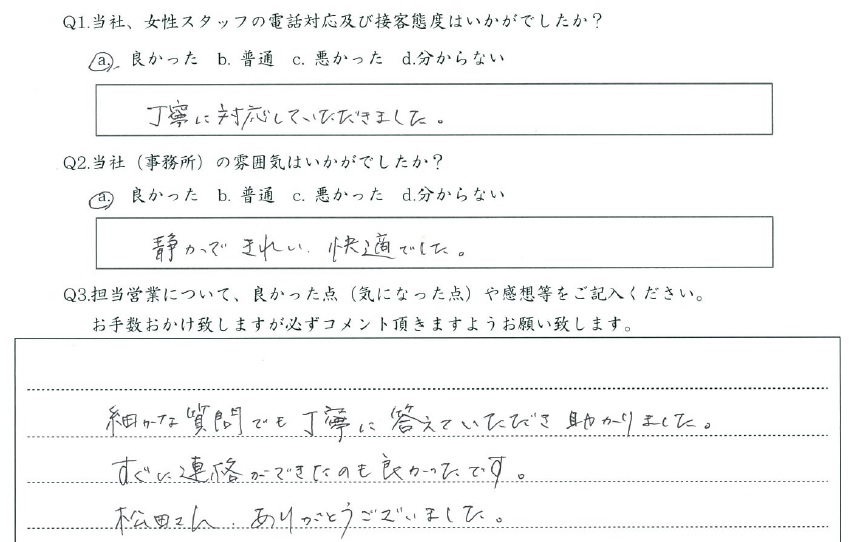 Q1.当社、女性スタッフの電話対応及び接客態度はいかがでしたか？
a. 良かった b. 普通 c. 悪かった d.分からない
丁寧に対応していただきました。
Q2.当社（事務所）の雰囲気はいかがでしたか？
a. 良かった b. 普通 c. 悪かった d.分からない
静かできれい、快適でした。
Q3.担当営業について、良かった点（気になった点）や感想等をご記入ください。
お手数おかけ致しますが必ずコメント頂きますようお願い致します。
細かな質問でも丁寧に答えていただき助かりました。
すぐに連絡ができたのも良かったです。
松田さん、ありがとうございました。